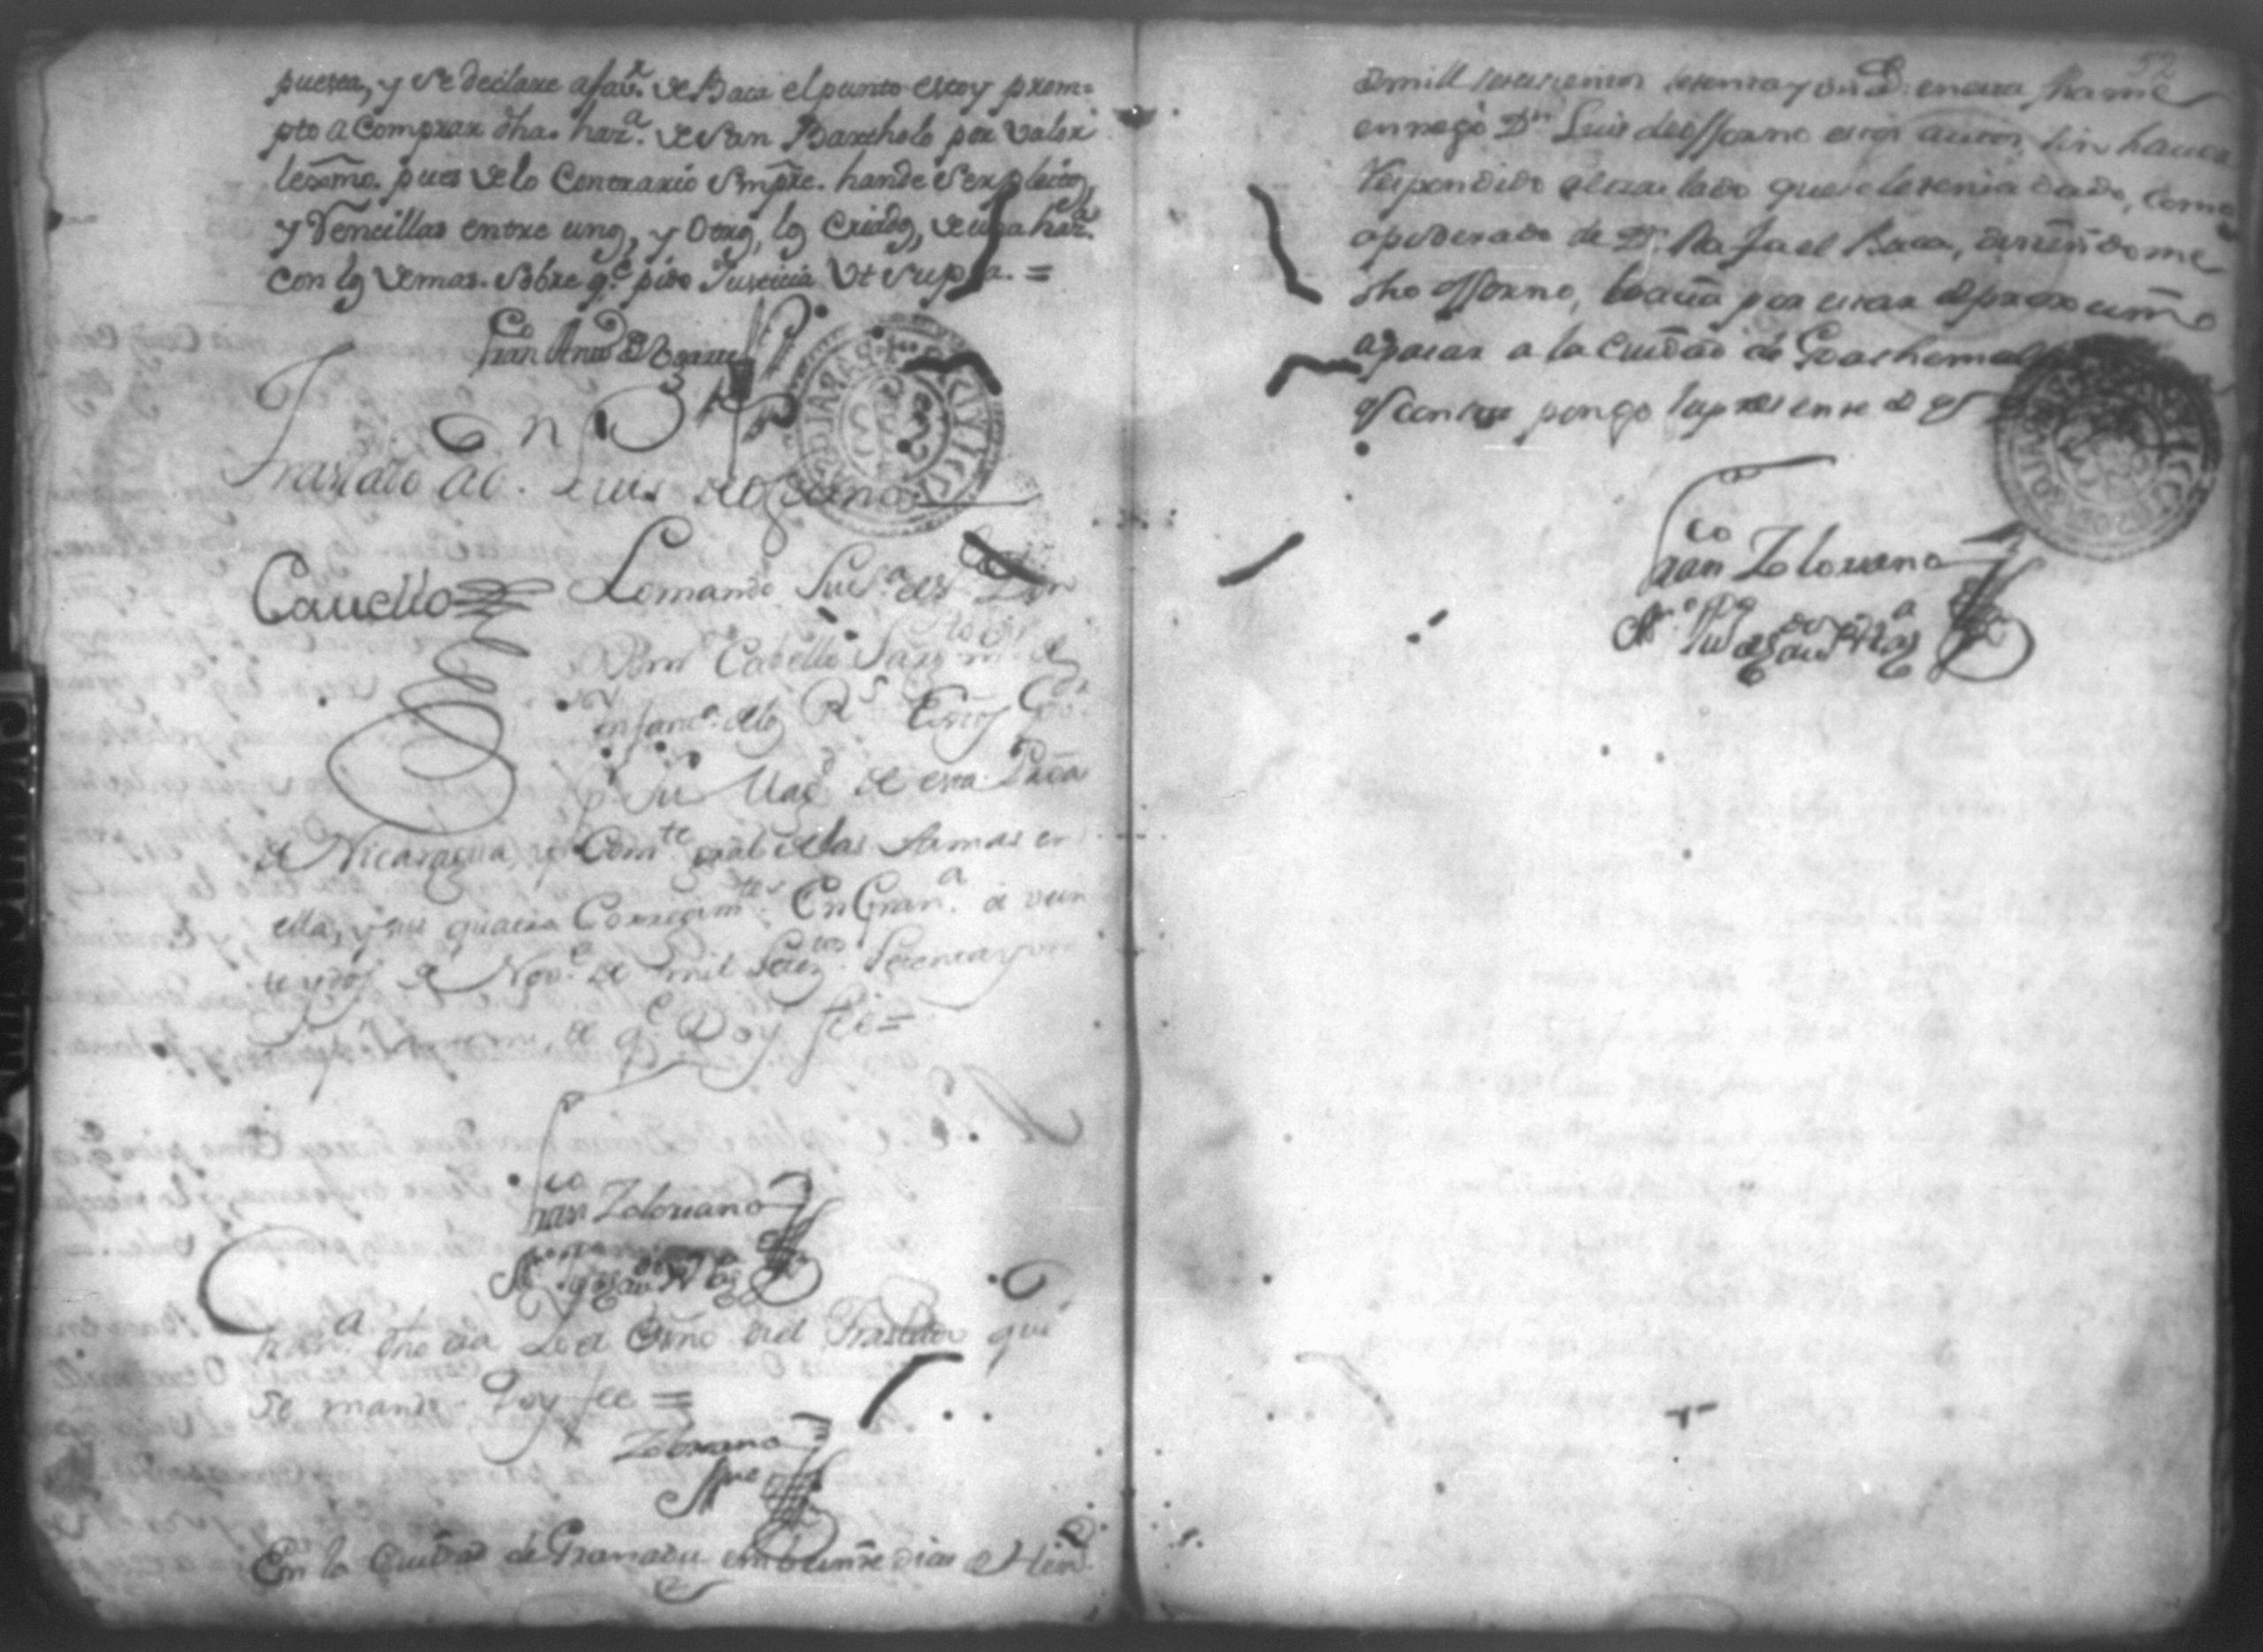 puesta, y se declare afav.r de Baca el punto estoy prom=
pto a Comprar dha. haz.a de San Bartholo por valor
lexmo. pues de lo Contrario Smpre. hande Ser pleitos,
y Rencillas entre unos, y Otros, los Criados, de una haz.a
con los demas. Sobre q.e pido Justicia Vt Supra. =
Fran.co Anto
Traslado a D. Luis de Osorno
Cauello
Lo mando Su S.a el S.r Don
Dom.o Cabello Sarg.to m.or de
Infant.a de los R.s Exercitos Gov.or
p.r Su Mag.d de esta Prov.a
de Nicaragua, y Com.te gral de las Armas en
ella, y sus quatro Corregim.tos En Gran.a a vein
te y dos de Nov.e de mil Setez.tos Setenta y un
de q.e Doy fee=
Fran.co Zoloruano
Gran.a dho dia Yo el Esno di el Traslado que
Se manda. Doy fee =
Zoloruano
En la Ciudad de Granada en beinte dias de
52
de mill setecientos setenta y un a. en esta fha me
entregó Dn Luis de Ossorno estos autos, sin hauer
Respondido el traslado que se le tenia dado, como
apoderado de Dn Rafael Baca, disiendome
dho Ossorno, lo asia por estar de proximo
a pasar a la Ciudad de Goathemala
q conste pongo la presente de q
Fran.co Zoloruano